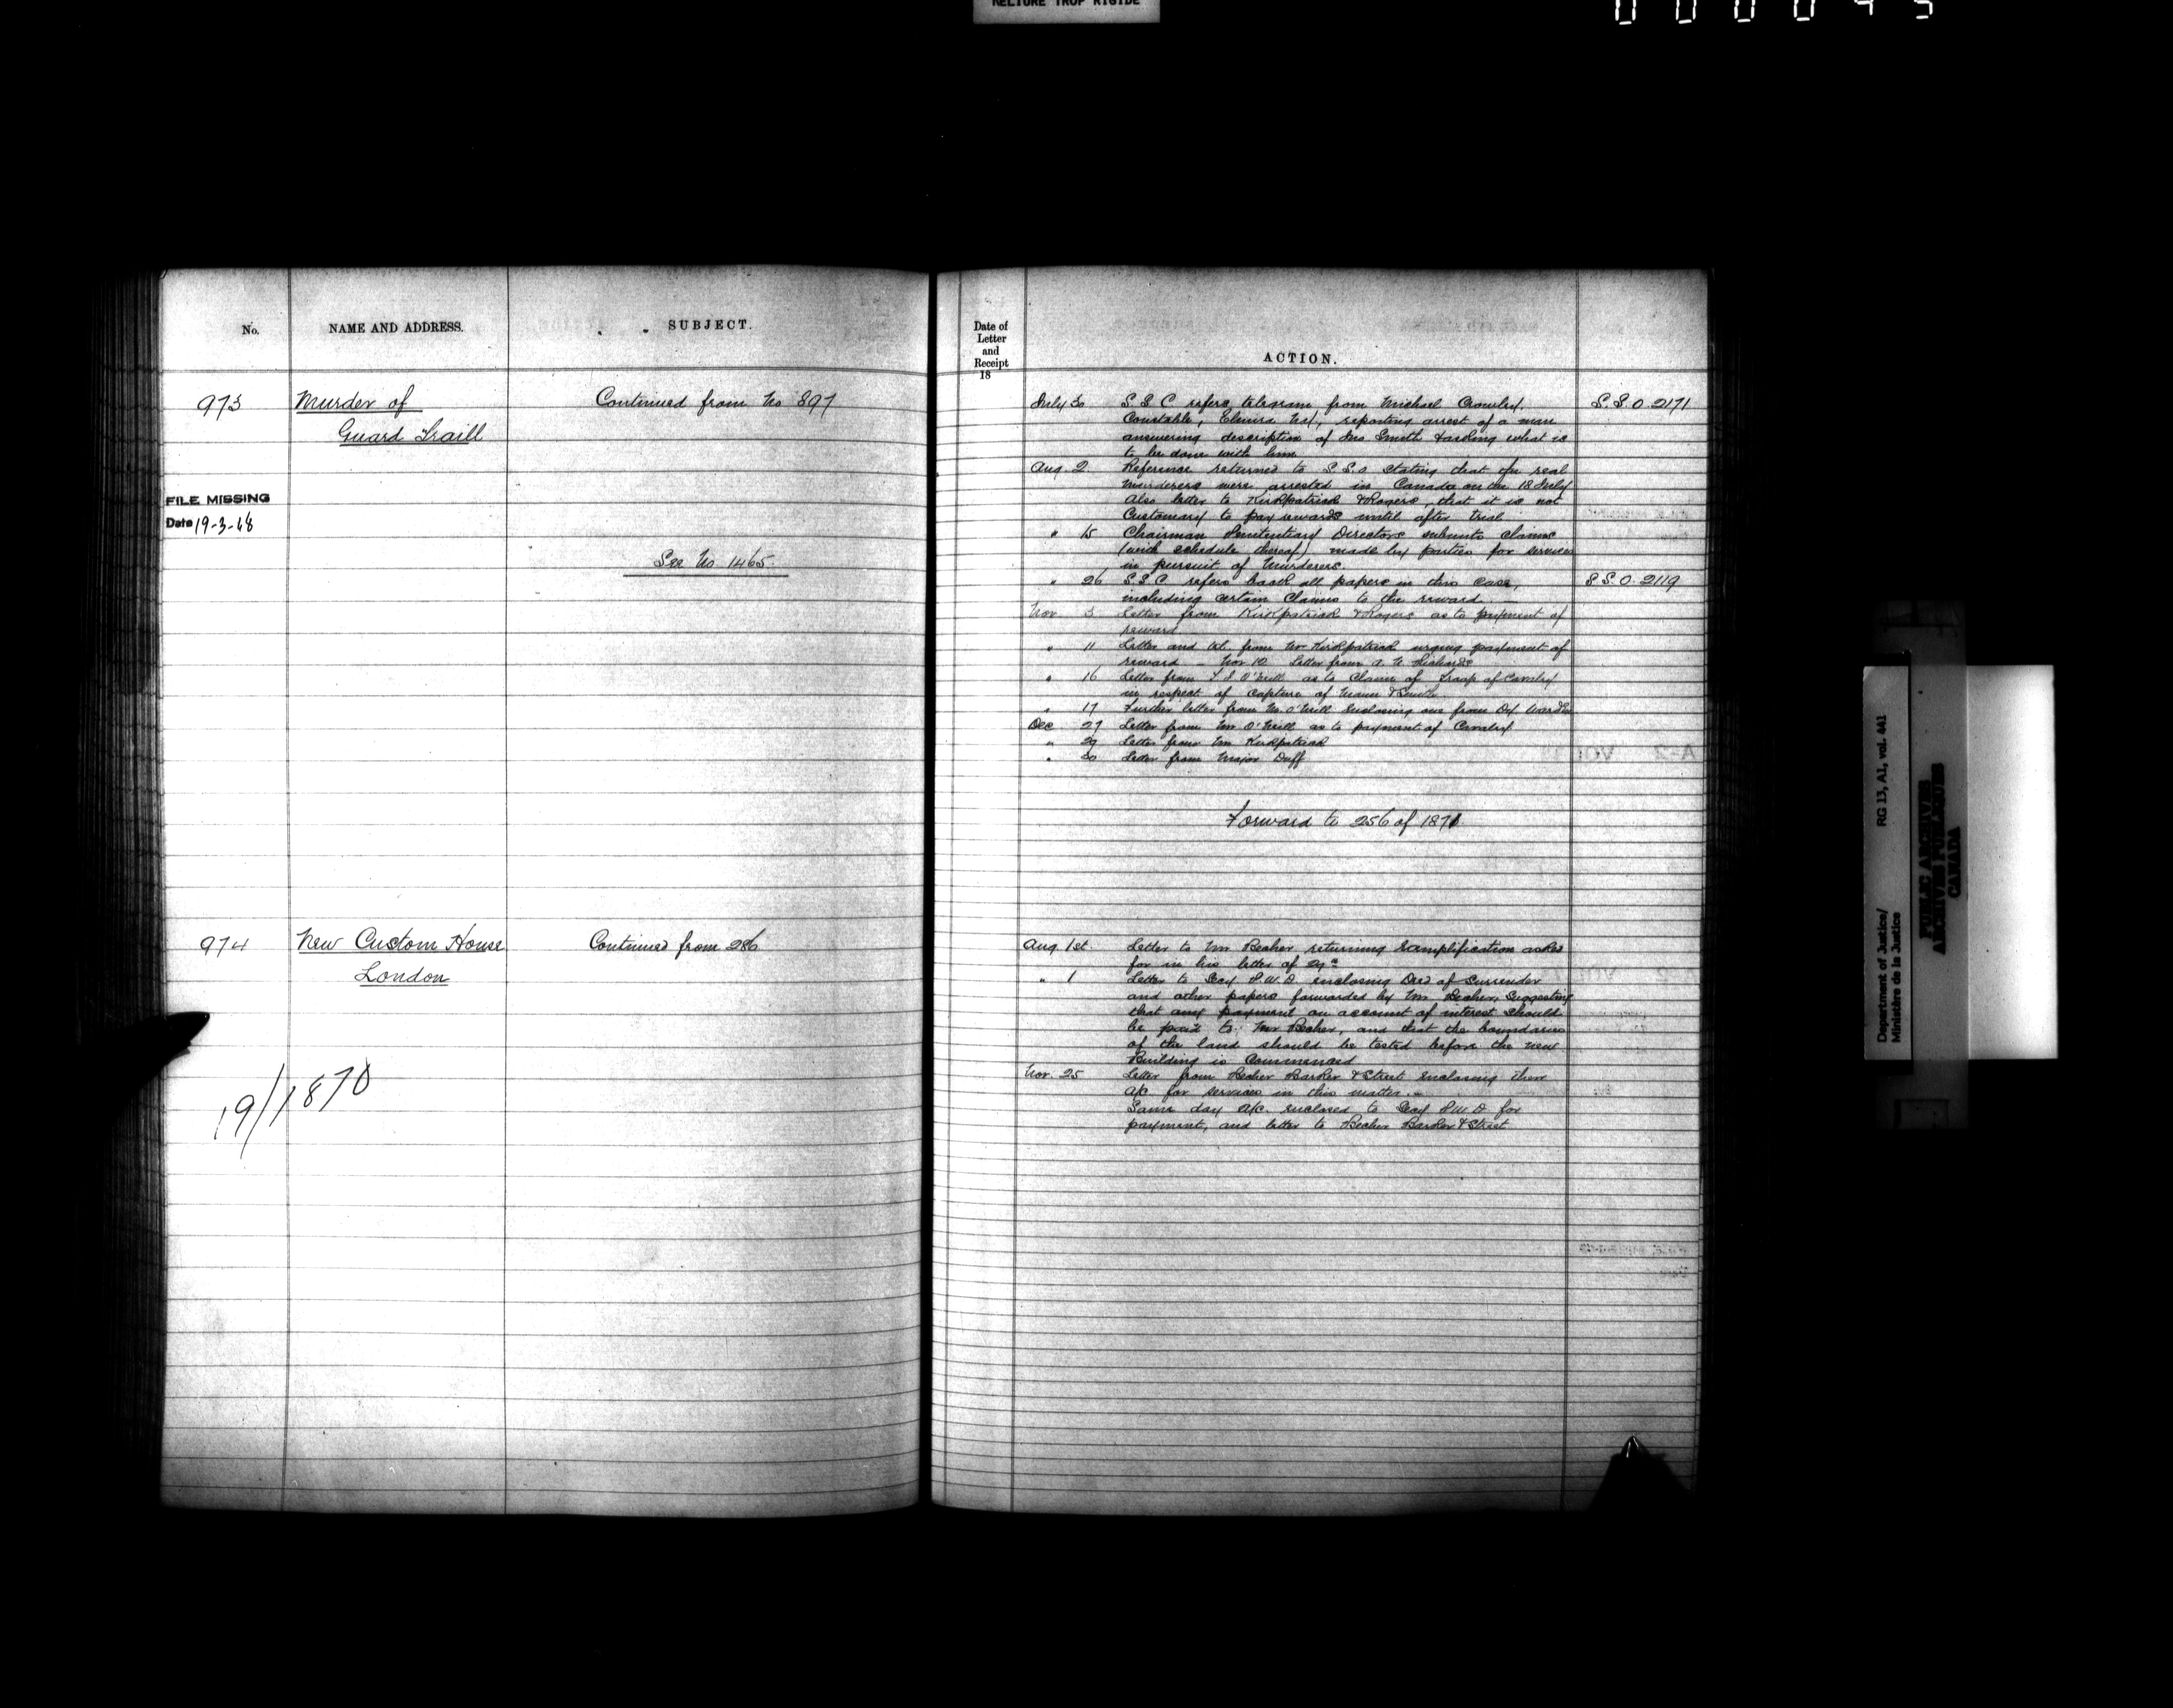 RELIURE TROP RIGIDE
No.
NAME AND ADDRESS.
SUBJECT.
973
Murder of
Guard Traill
Continued from No 897
FILE MISSING
Date 19-3-68
See No 1465
974
New Custom House
London
Continued from 286
19/1870
Date of
Letter
and
Receipt
18
ACTION.
July 30 S.S.C refers telegram from Michael Crowley, S.S.O. 2171
Constable, Elmira N.Y., reporting arrest of a man
answering description of Jno Smith & asking what is
to be done with him
Aug. 2 Reference returned to S.S.O stating that the real
Murderers were arrested in Canada on the 18 July
Also letter to Kirkpatrick & Rogers, that it is not
Customary to pay rewards until after trial
" 15 Chairman Penitentiary Directors submits claims
(with schedule thereof) made by parties for services
in pursuit of Murderers.
" 26 S.S.C. refers back all papers in this case, S.S.O. 2119
including certain Claims to the reward.
Nov 3 Letter from Kirkpatrick & Rogers as to payment of
reward
" 11 Letter and tel. from Mr Kirkpatrick urging payment of
reward - Nov 10 Letter from A. N. Richards
" 16 Letter from O'Neill as to Claim of Troop of Cavalry
in respect of capture of Mann & Smith
" 17 Further letter from Mr. O'Neill enclosing one from Dy. Warden
Dec 27 Letter from Mr O'Neill as to payment of Cavalry
" 29 Letter from Mr Kirkpatrick
" 30 Letter from Major Duff
Forward to 256 of 1871
Aug. 1st Letter to Mr Becher returning Exemplification asked
for in his letter of 29th
" 1 Letter to Secy P.W.D enclosing Deed of Surrender
and other papers forwarded by Mr. Becher, Suggesting
that any payment on account of interest should
be paid to Mr Becher, and that the boundaries
of the land should be tested before the new
Building is Commenced
Nov. 25 Letter from Becher Barker & Street enclosing their
a/c for services in this matter. -
Same day a/c. enclosed to Secy P.W.D. for
payment, and letter to Becher Barker & Street
Department of Justice/ RG 13, A1, vol. 441
Ministère de la Justice
PUBLIC ARCHIVES
ARCHIVES PUBLIQUES
CANADA